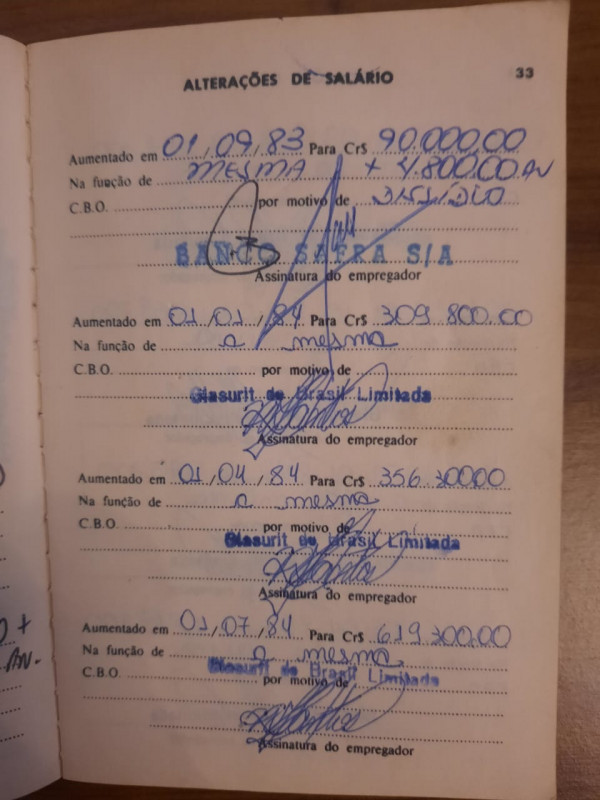 ALTERAÇÕES DE SALÁRIO
33
Aumentado em 01/09/83 Para Cr$ 90.000,00
Na função de MESMA + 4.800,00 AN
C.B.O. por motivo de
BANCO SAFRA S/A
Assinatura do empregador
Aumentado em 01/01/84 Para Cr$ 309.800,00
Na função de a mesma
C.B.O. por motivo de
Glasurit do Brasil Limitada
Assinatura do empregador
Aumentado em 01/04/84 Para Cr$ 356.300,00
Na função de a mesma
C.B.O. por motivo de
Glasurit do Brasil Limitada
Assinatura do empregador
Aumentado em 01/07/84 Para Cr$ 619.300,00
Na função de a mesma
Glasurit do Brasil Limitada
C.B.O. por motivo de
Assinatura do empregador